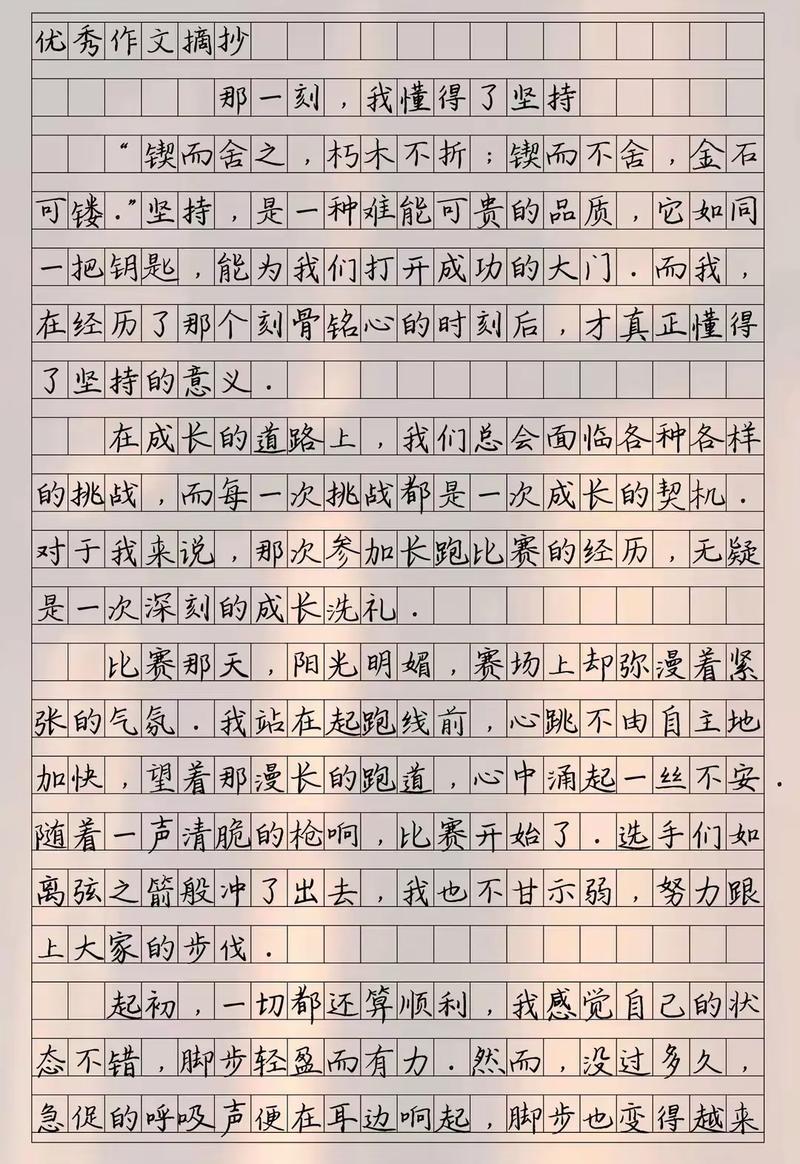 优秀作文摘抄
那一刻，我懂得了坚持
“锲而舍之，朽木不折；锲而不舍，金石
可镂.”坚持，是一种难能可贵的品质，它如同
一把钥匙，能为我们打开成功的大门.而我，
在经历了那个刻骨铭心的时刻后，才真正懂得
了坚持的意义.
在成长的道路上，我们总会面临各种各样
的挑战，而每一次挑战都是一次成长的契机.
对于我来说，那次参加长跑比赛的经历，无疑
是一次深刻的成长洗礼.
比赛那天，阳光明媚，赛场上却弥漫着紧
张的气氛.我站在起跑线前，心跳不由自主地
加快，望着那漫长的跑道，心中涌起一丝不安.
随着一声清脆的枪响，比赛开始了.选手们如
离弦之箭般冲了出去，我也不甘示弱，努力跟
上大家的步伐.
起初，一切都还算顺利，我感觉自己的状
态不错，脚步轻盈而有力.然而，没过多久，
急促的呼吸声便在耳边响起，脚步也变得越来